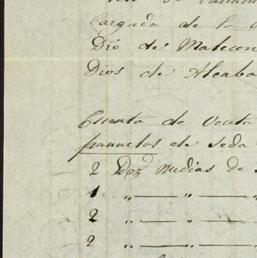 Cargada de la
Dio de Malecon
Dios de Alcaba
Cuenta de Venta
panuelos de seda
2 Doz medias de
1 " — " —
2 " — " —
2 " — " —